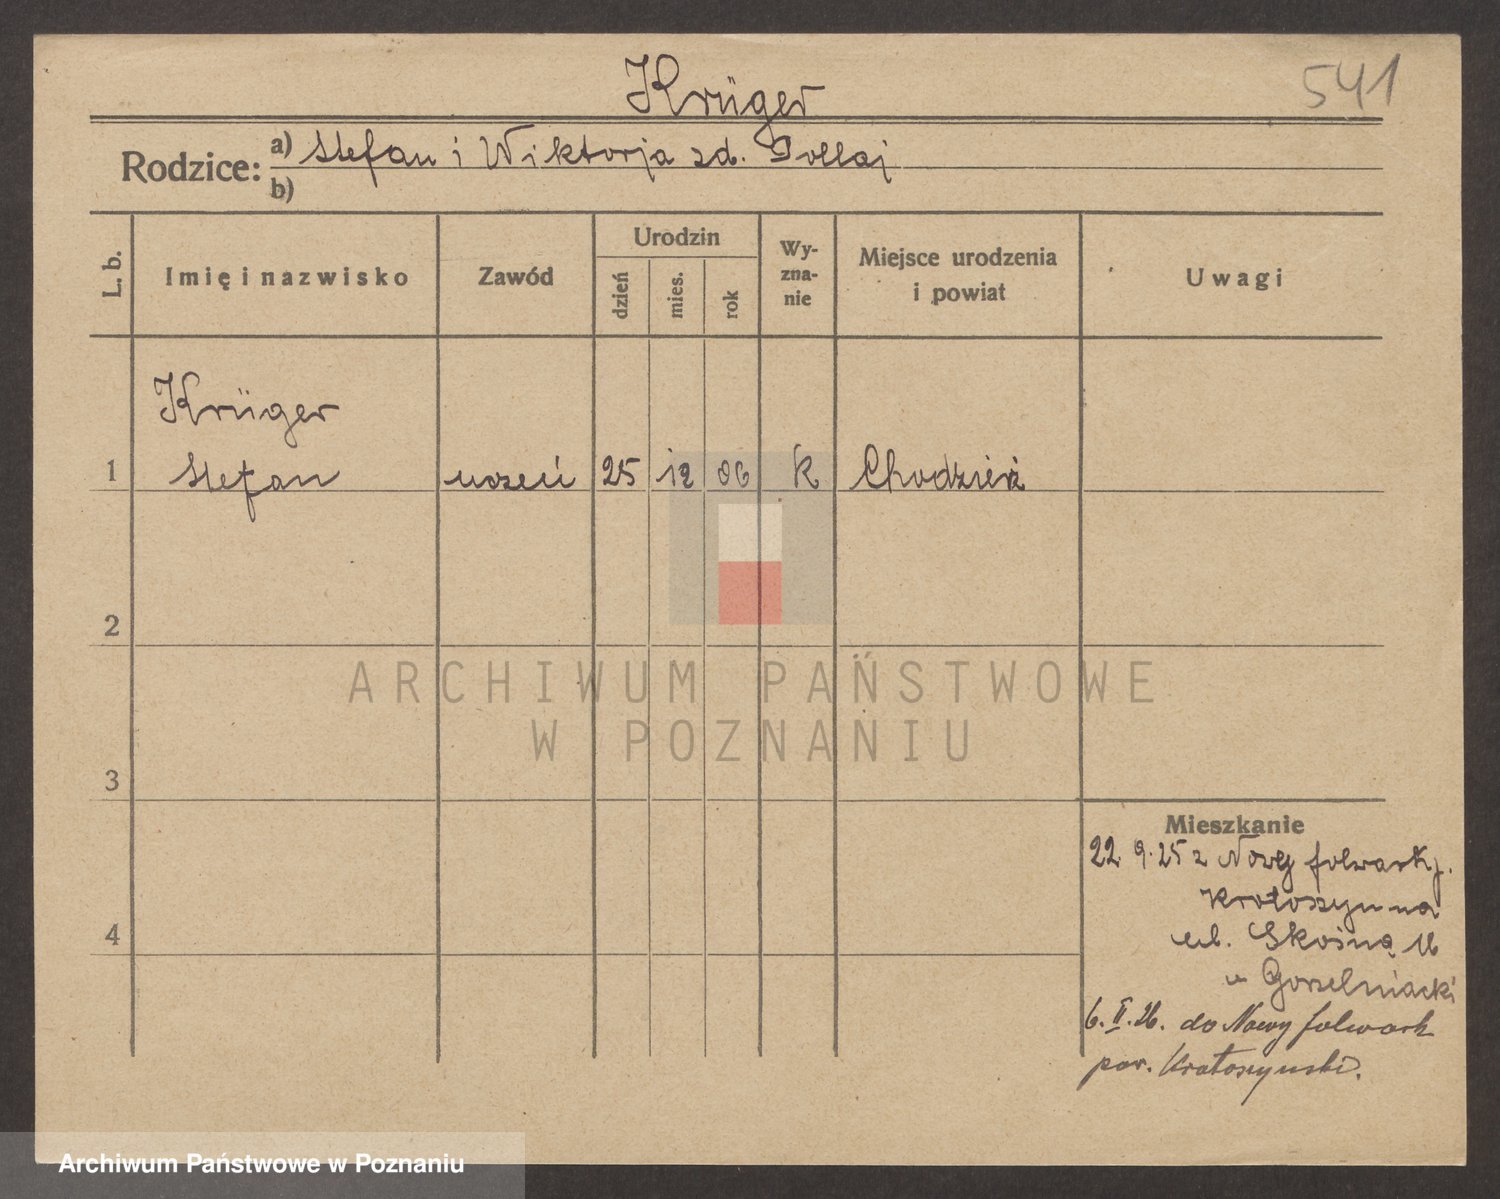 Krüger
541
Rodzice: a) Stefan i Wiktorja zd. Dollaj
b)
L. b.
Imię i nazwisko
Zawód
Urodzin
dzień
mies.
rok
Wy-
zna-
nie
Miejsce urodzenia
i powiat
Uwagi
Krüger
1 Stefan uczeń 25 12 06 k Chodzież
2
3
4
ARCHIWUM PAŃSTWOWE
W POZNANIU
Mieszkanie
22 9.25 z Nowy folwark p.
Krotoszyn na
ul. Skośną 16
u Gorzelniacki
6.II.26. do Nowy folwark
pow. Krotoszynski.
Archiwum Państwowe w Poznaniu